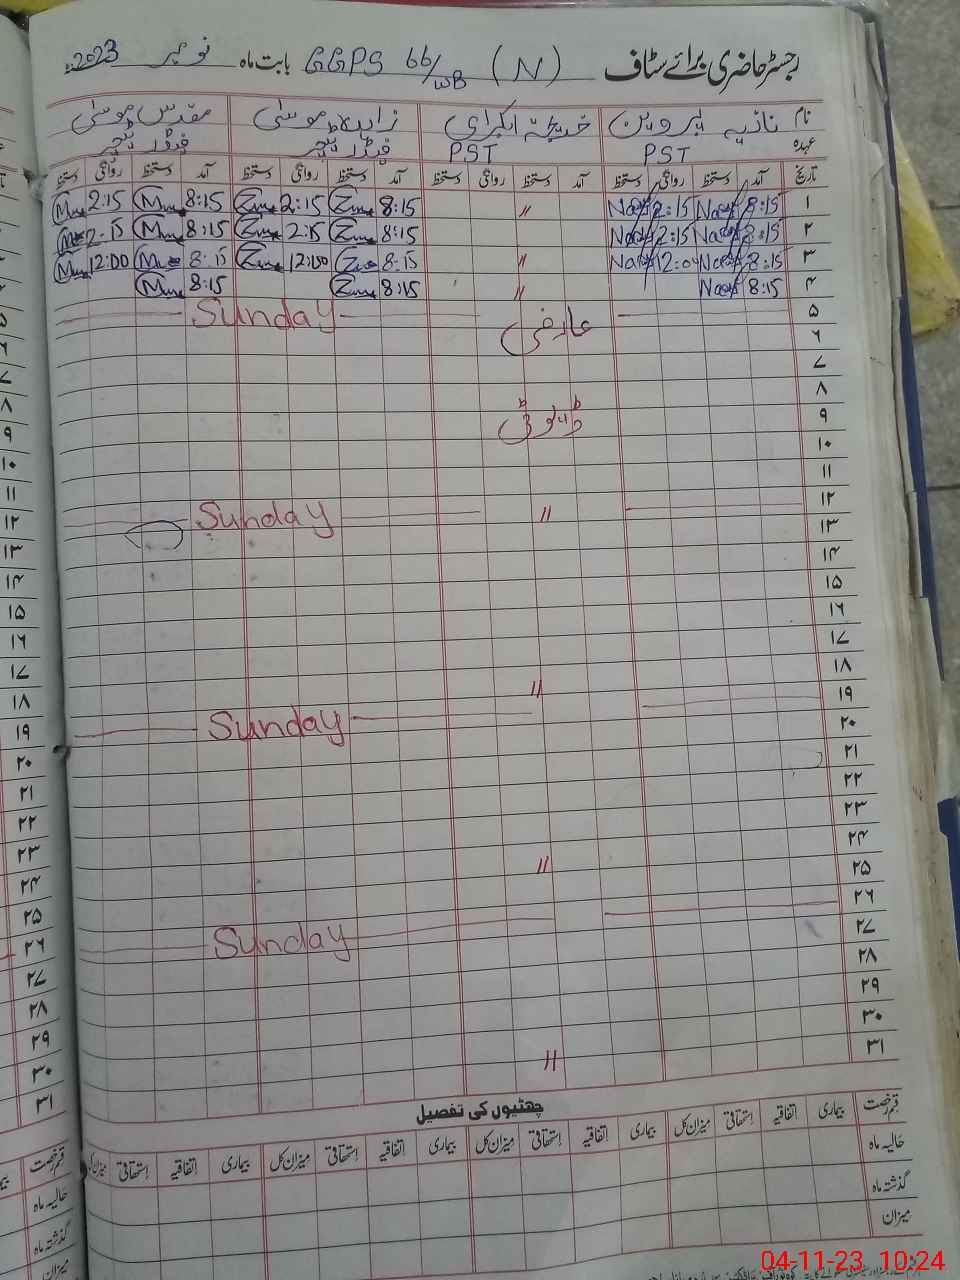 رجسٹر حاضری برائے سٹاف (N) GGPS 66/WB بابت ماہ نومبر 2023ء
نام نادیہ پروین خدیجۃ الکبرای زاہدہ موسیٰ مقدس موسیٰ
عہدہ PST PST فیڈر ٹیچر فیڈر ٹیچر
تاریخ آمد دستخط روانگی دستخط آمد دستخط روانگی دستخط آمد دستخط روانگی دستخط آمد دستخط روانگی دستخط
۱ 8:15 2:15 〃 8:15 2:15 8:15 2:15
۲ 8:15 2:15 8:15 2:15 8:15 2:15
۳ 8:15 〃 8:15 12:00 8:15 12:00
۴ 8:15 〃 8:15 8:15
۵ Sunday
۶ عارضی
۷
۸
۹ ڈیوٹی
۱۰
۱۱
۱۲ 〃 Sunday
۱۳
۱۴
۱۵
۱۶
۱۷
۱۸
۱۹ 〃 Sunday
۲۰
۲۱
۲۲
۲۳
۲۴
۲۵ 〃
۲۶ Sunday
۲۷
۲۸
۲۹
۳۰
۳۱ 〃
چھٹیوں کی تفصیل
قسم رخصت بیماری اتفاقیہ استحقاقی میزان کل بیماری اتفاقیہ استحقاقی میزان کل بیماری اتفاقیہ استحقاقی میزان کل بیماری اتفاقیہ استحقاقی میزان کل
حالیہ ماہ
گذشتہ ماہ
میزان
04-11-23 10:24